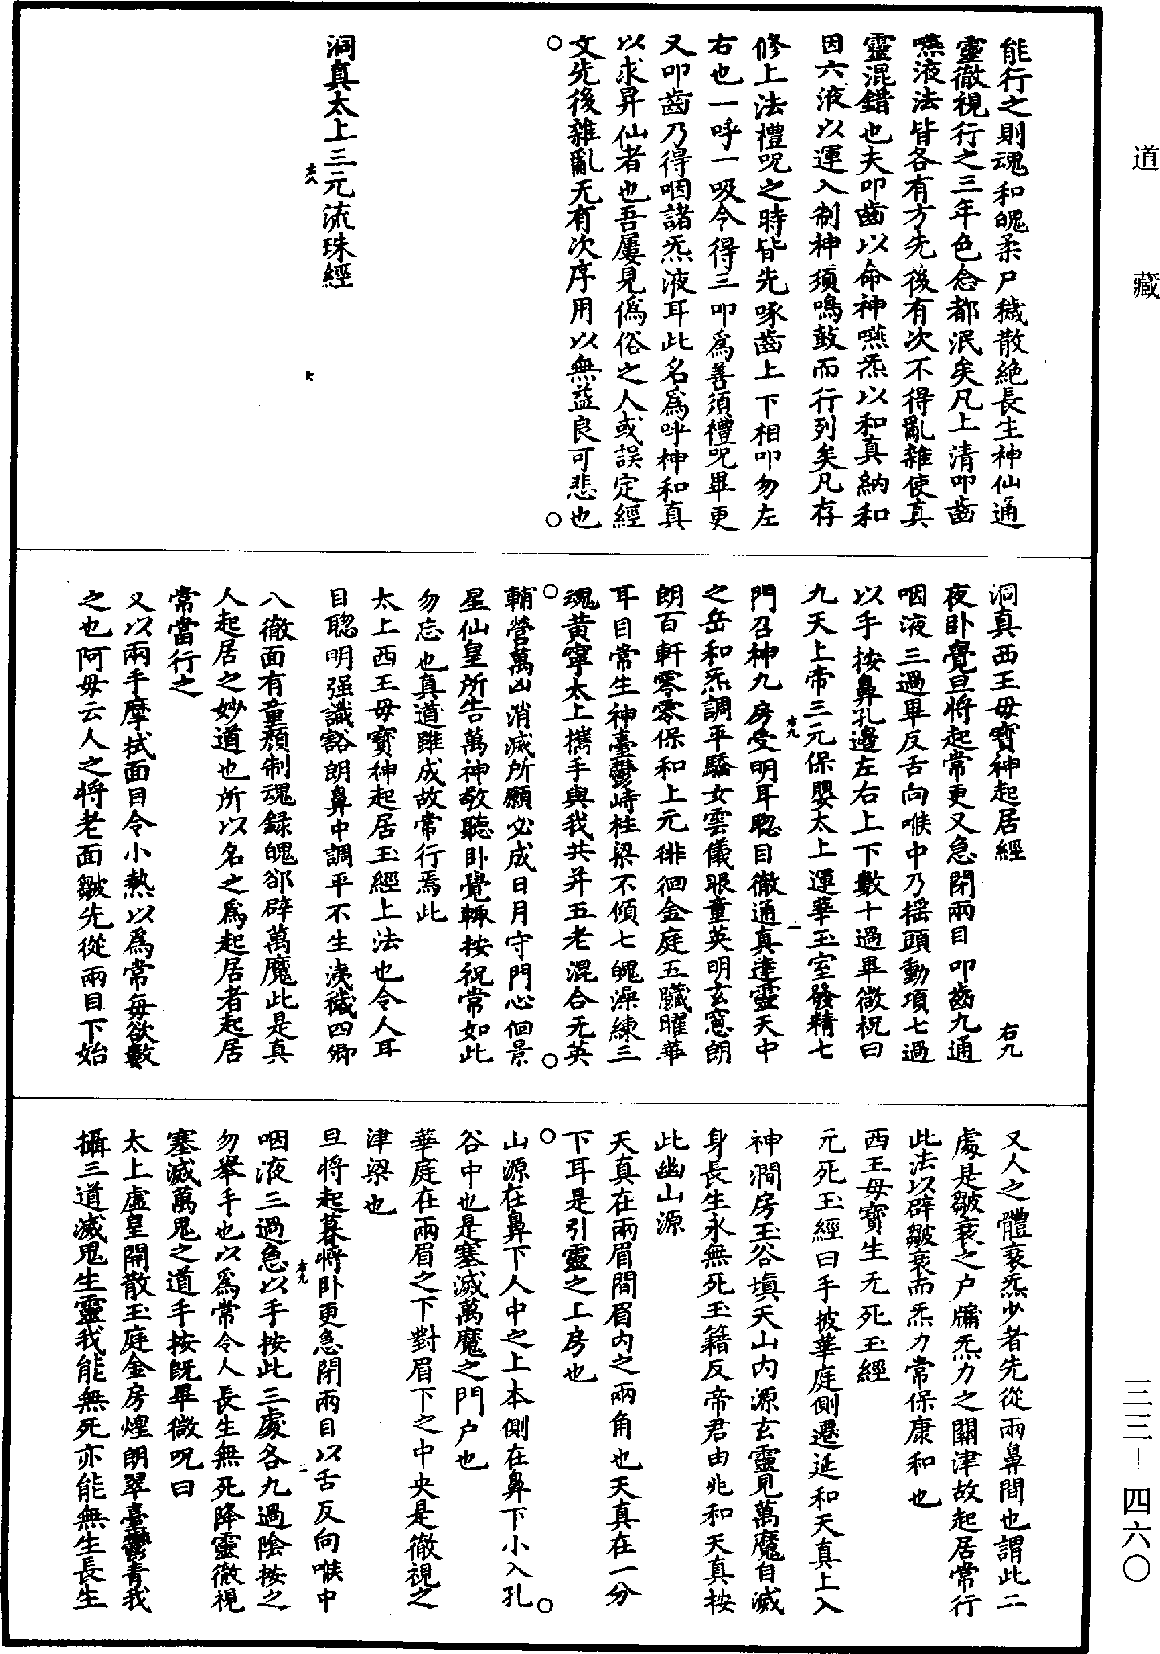 道藏
三三—四六〇
能行之則魂和魄柔尸穢散絶長生神仙通
靈徹視行之三年色念都泯矣凡上清叩齒
嚥液法皆各有方先後有次不得亂雜使真
靈混錯也夫叩齒以命神嚥炁以和真納和
因六液以運入制神須鳴鼓而行列矣凡存
修上法禮呪之時皆先啄齒上下相叩勿左
右也一呼一吸令得三叩爲善須禮呪畢更
又叩齒乃得咽諸炁液耳此名爲呼神和真
以求昇仙者也吾屢見僞俗之人或誤定經
文先後雜亂无有次序用以無益良可悲也
洞真太上三元流珠經
洞真西王母寶神起居經 右九
夜卧覺旦將起常更又急閉兩目叩齒九通
咽液三過畢反舌向喉中乃揺頭動項七過
以手按鼻孔邊左右上下數十過畢微祝曰
九天上帝三元保嬰太上運華玉室發精七
門召神九房受明耳聰目徹通真達靈天中
之岳和炁調平驕女雲儀眼童英明玄窓朗
朗百軒零零保和上元徘徊金庭五臟曜華
耳目常生神臺鬱峙柱梁不傾七魄澡練三
魂黄寧太上攜手與我共并五老混合无英
輔營萬凶消滅所願必成日月守門心徊景
星仙皇所告萬神敬聽卧覺輙按祝常如此
勿忘也真道雖成故常行焉此
太上西王母寶神起居玉經上法也令人耳
目聰明强識豁朗鼻中調平不生洟穢四卿
八徹面有童顔制魂録魄郤辟萬魔此是真
人起居之妙道也所以名之爲起居者起居
常當行之
又以兩手摩拭面目令小熱以爲常每欲數
之也阿母云人之將老面皺先從兩目下始
又人之體衰炁少者先從兩鼻間也謂此二
處是皺衰之户牖炁力之關津故起居常行
此法以辟皺衰而炁力常保康和也
西王母寶生无死玉經
元死玉經曰手披華庭側邐延和天真上入
神澗房玉谷填天山内源玄靈見萬魔自滅
身長生永無死玉籍反帝君由兆和天真按
此幽山源
天真在兩眉間眉内之兩角也天真在一分
下耳是引靈之上房也
山源在鼻下人中之上本側在鼻下小入孔
谷中也是塞滅萬魔之門户也
華庭在兩眉之下對眉下之中央是徹視之
津梁也
旦將起暮將卧更急閉兩目以舌反向喉中
咽液三過急以手按此三處各九過陰按之
勿舉手也以爲常令人長生無死降靈徹視
塞滅萬鬼之道手按既畢微呪曰
太上虚皇開散玉庭金房煌朗翠臺鬱青我
攝三道滅鬼生靈我能無死亦能無生長生